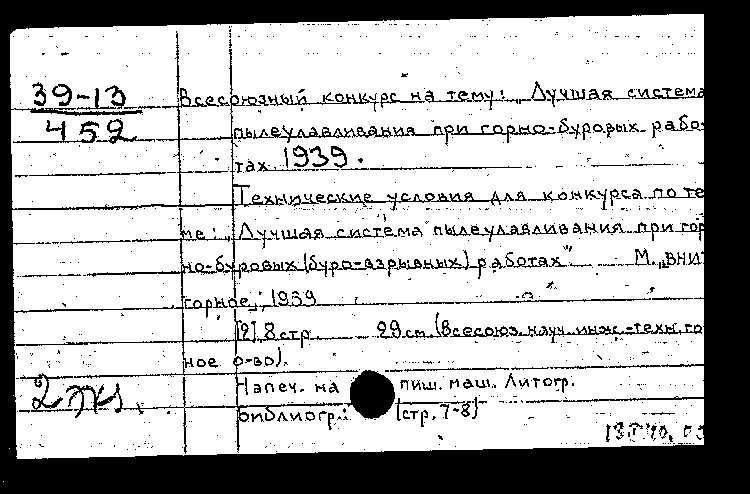 39-13
452
Всесоюзный конкурс на тему: „Лучшая система
пылеулавливания при горно-буровых рабо-
тах. 1939.
Технические условия для конкурса по те
ме: „Лучшая система пылеулавливания при гор
но-буровых (буро-взрывных) работах" М., „ВНИТ
горное", 1939
[2], 8 стр. 29 см. (Всесоюз. науч. инж.-техн. го
ное о-во).
2
Напеч. на пиш. маш. Литогр.
библиогр.: (стр. 7-8)